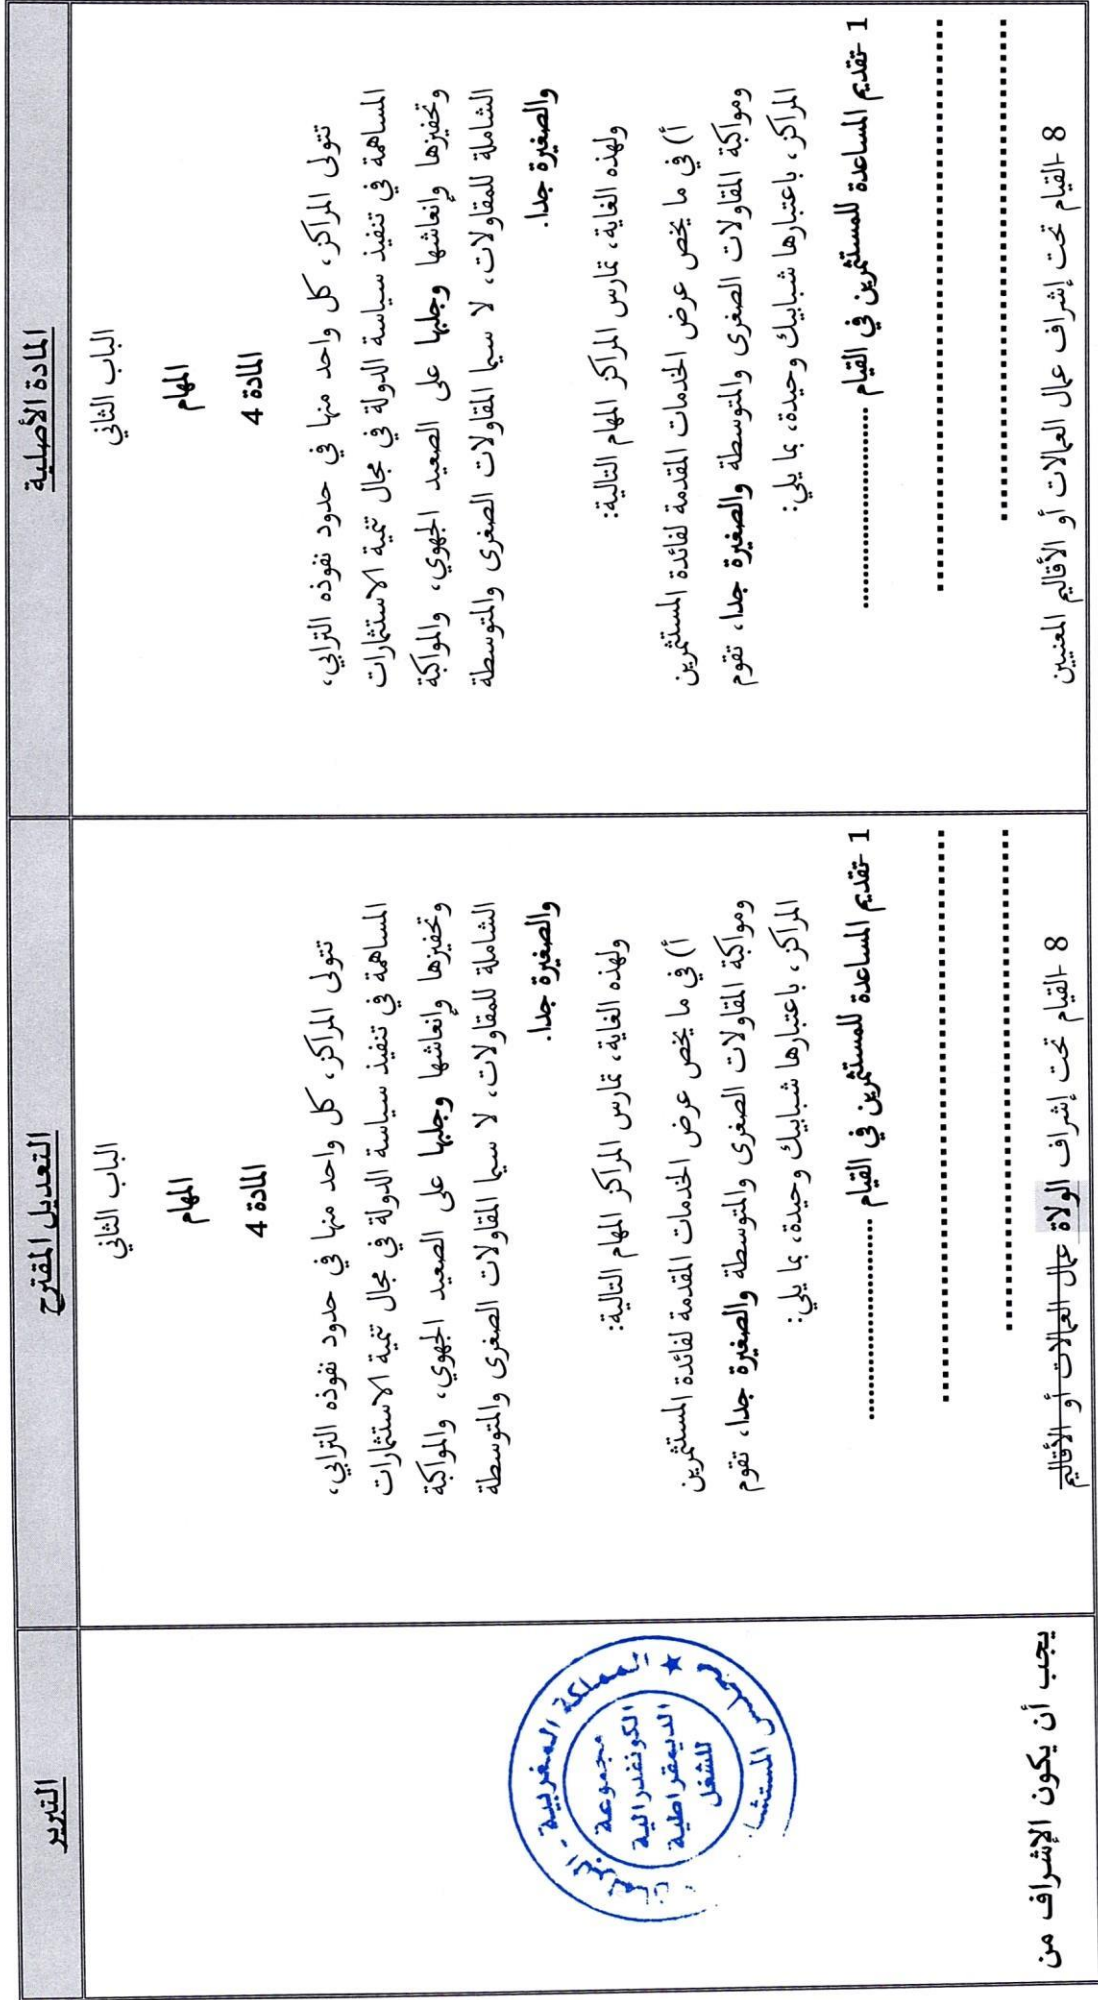 المادة الأصلية
الباب الثاني
المهام
المادة 4
تتولى المراكز، كل واحد منها في حدود نفوذه الترابي،
المساهمة في تنفيذ سياسة الدولة في مجال تنمية الاستثمارات
وتحفيزها وإنعاشها وجلبها على الصعيد الجهوي، والمواكبة
الشاملة للمقاولات، لا سيما المقاولات الصغرى والمتوسطة
والصغيرة جدا.
ولهذه الغاية، تمارس المراكز المهام التالية:
أ) في ما يخص عرض الخدمات المقدمة لفائدة المستثمرين
ومواكبة المقاولات الصغرى والمتوسطة والصغيرة جدا، تقوم
المراكز، باعتبارها شبابيك وحيدة، بما يلي:
1-تقديم المساعدة للمستثمرين في القيام ..............................
............................................................
............................................................
8-القيام تحت إشراف عمال العمالات أو الأقاليم المعنيين
التعديل المقترح
الباب الثاني
المهام
المادة 4
تتولى المراكز، كل واحد منها في حدود نفوذه الترابي،
المساهمة في تنفيذ سياسة الدولة في مجال تنمية الاستثمارات
وتحفيزها وإنعاشها وجلبها على الصعيد الجهوي، والمواكبة
الشاملة للمقاولات، لا سيما المقاولات الصغرى والمتوسطة
والصغيرة جدا.
ولهذه الغاية، تمارس المراكز المهام التالية:
أ) في ما يخص عرض الخدمات المقدمة لفائدة المستثمرين
ومواكبة المقاولات الصغرى والمتوسطة والصغيرة جدا، تقوم
المراكز، باعتبارها شبابيك وحيدة، بما يلي:
1-تقديم المساعدة للمستثمرين في القيام ..............................
............................................................
............................................................
8-القيام تحت إشراف الولاة عمال العمالات أو الأقاليم
التبرير
المملكة المغربية
مجموعة
الكونفدرالية
الديمقراطية
للشغل
يجب أن يكون الإشراف من